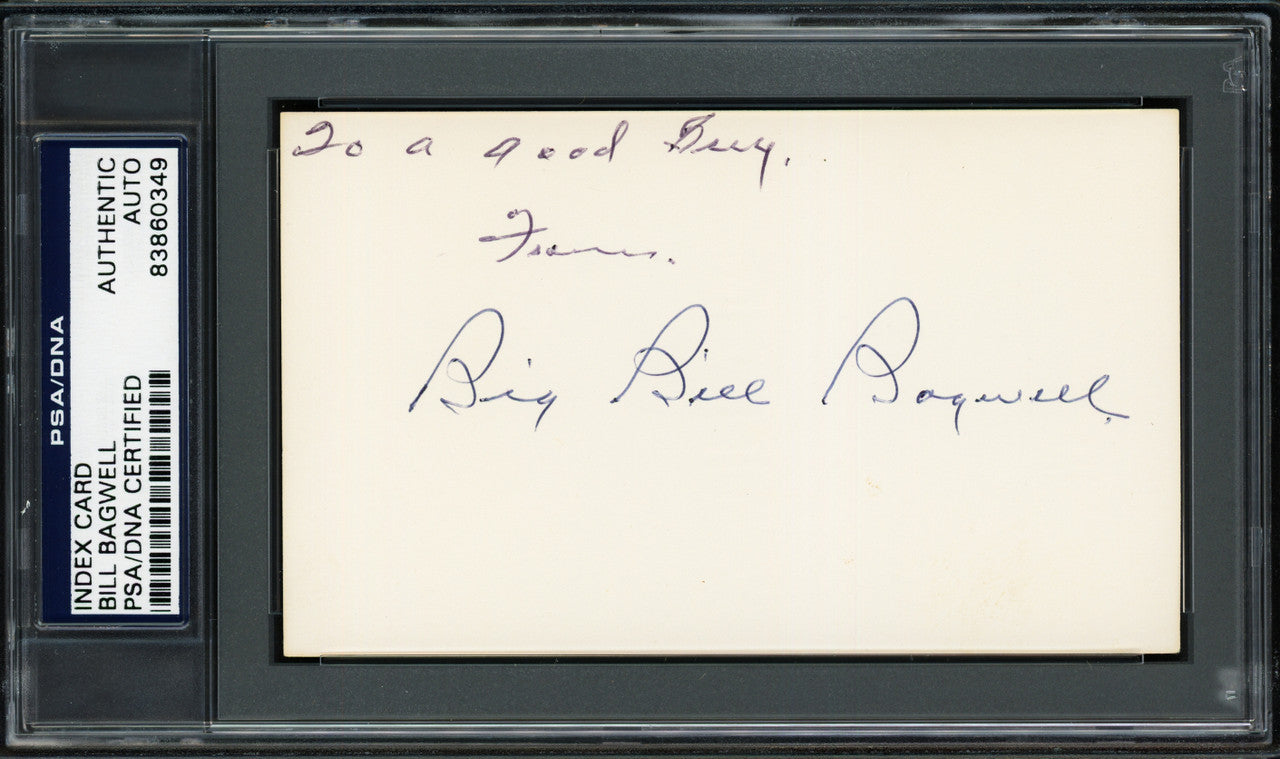 PSA/DNA
INDEX CARD
BILL BAGWELL
PSA/DNA CERTIFIED
AUTHENTIC
AUTO
83860349
To a good Guy.
From.
Big Bill Bagwell.